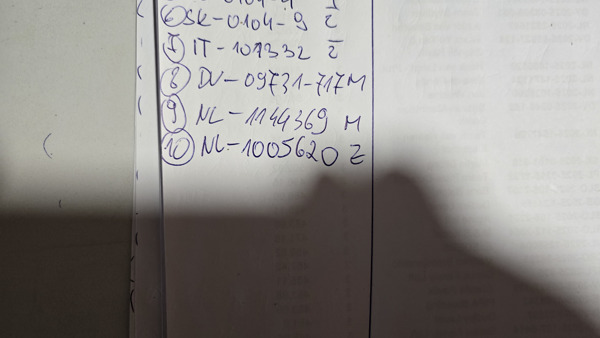 ⑥ SK-0104-9 Ž
⑦ IT-107332 Ž
⑧ DV-09731-717 M
⑨ NL-1144369 M
⑩ NL-1005620 Z